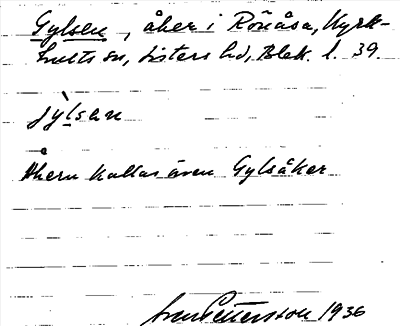 Gylsen, åker i Rönåsa, Kyrk-
hults sn, Listers hd, Blek. l. 39.
jỳlsen
Åkern kallas även Gylsåker
Pettersson 1936